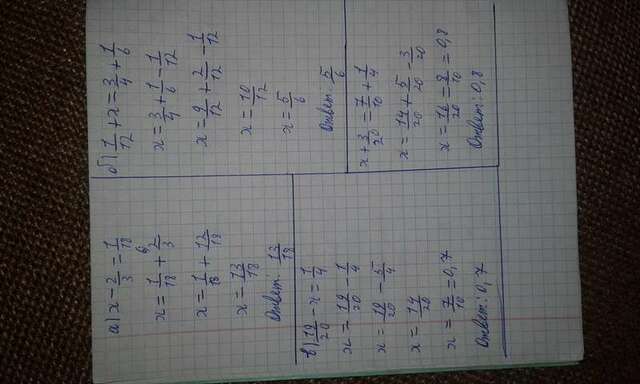 а) x - 2/3 = 1/18
x = 1/18 + 2/3 6
x = 1/18 + 12/18
x = 13/18
Ответ: 13/18
б) 1/12 + x = 3/4 + 1/6
x = 3/4 + 1/6 - 1/12
x = 9/12 + 2/12 - 1/12
x = 10/12
x = 5/6
Ответ: 5/6
в) 19/20 - x = 1/4
x = 19/20 - 1/4
x = 19/20 - 5/4
x = 14/20
x = 7/10 = 0,7
Ответ: 0,7
x + 3/20 = 7/10 + 1/4
x = 14/20 + 5/20 - 3/20
x = 16/20 = 8/10 = 0,8
Ответ: 0,8